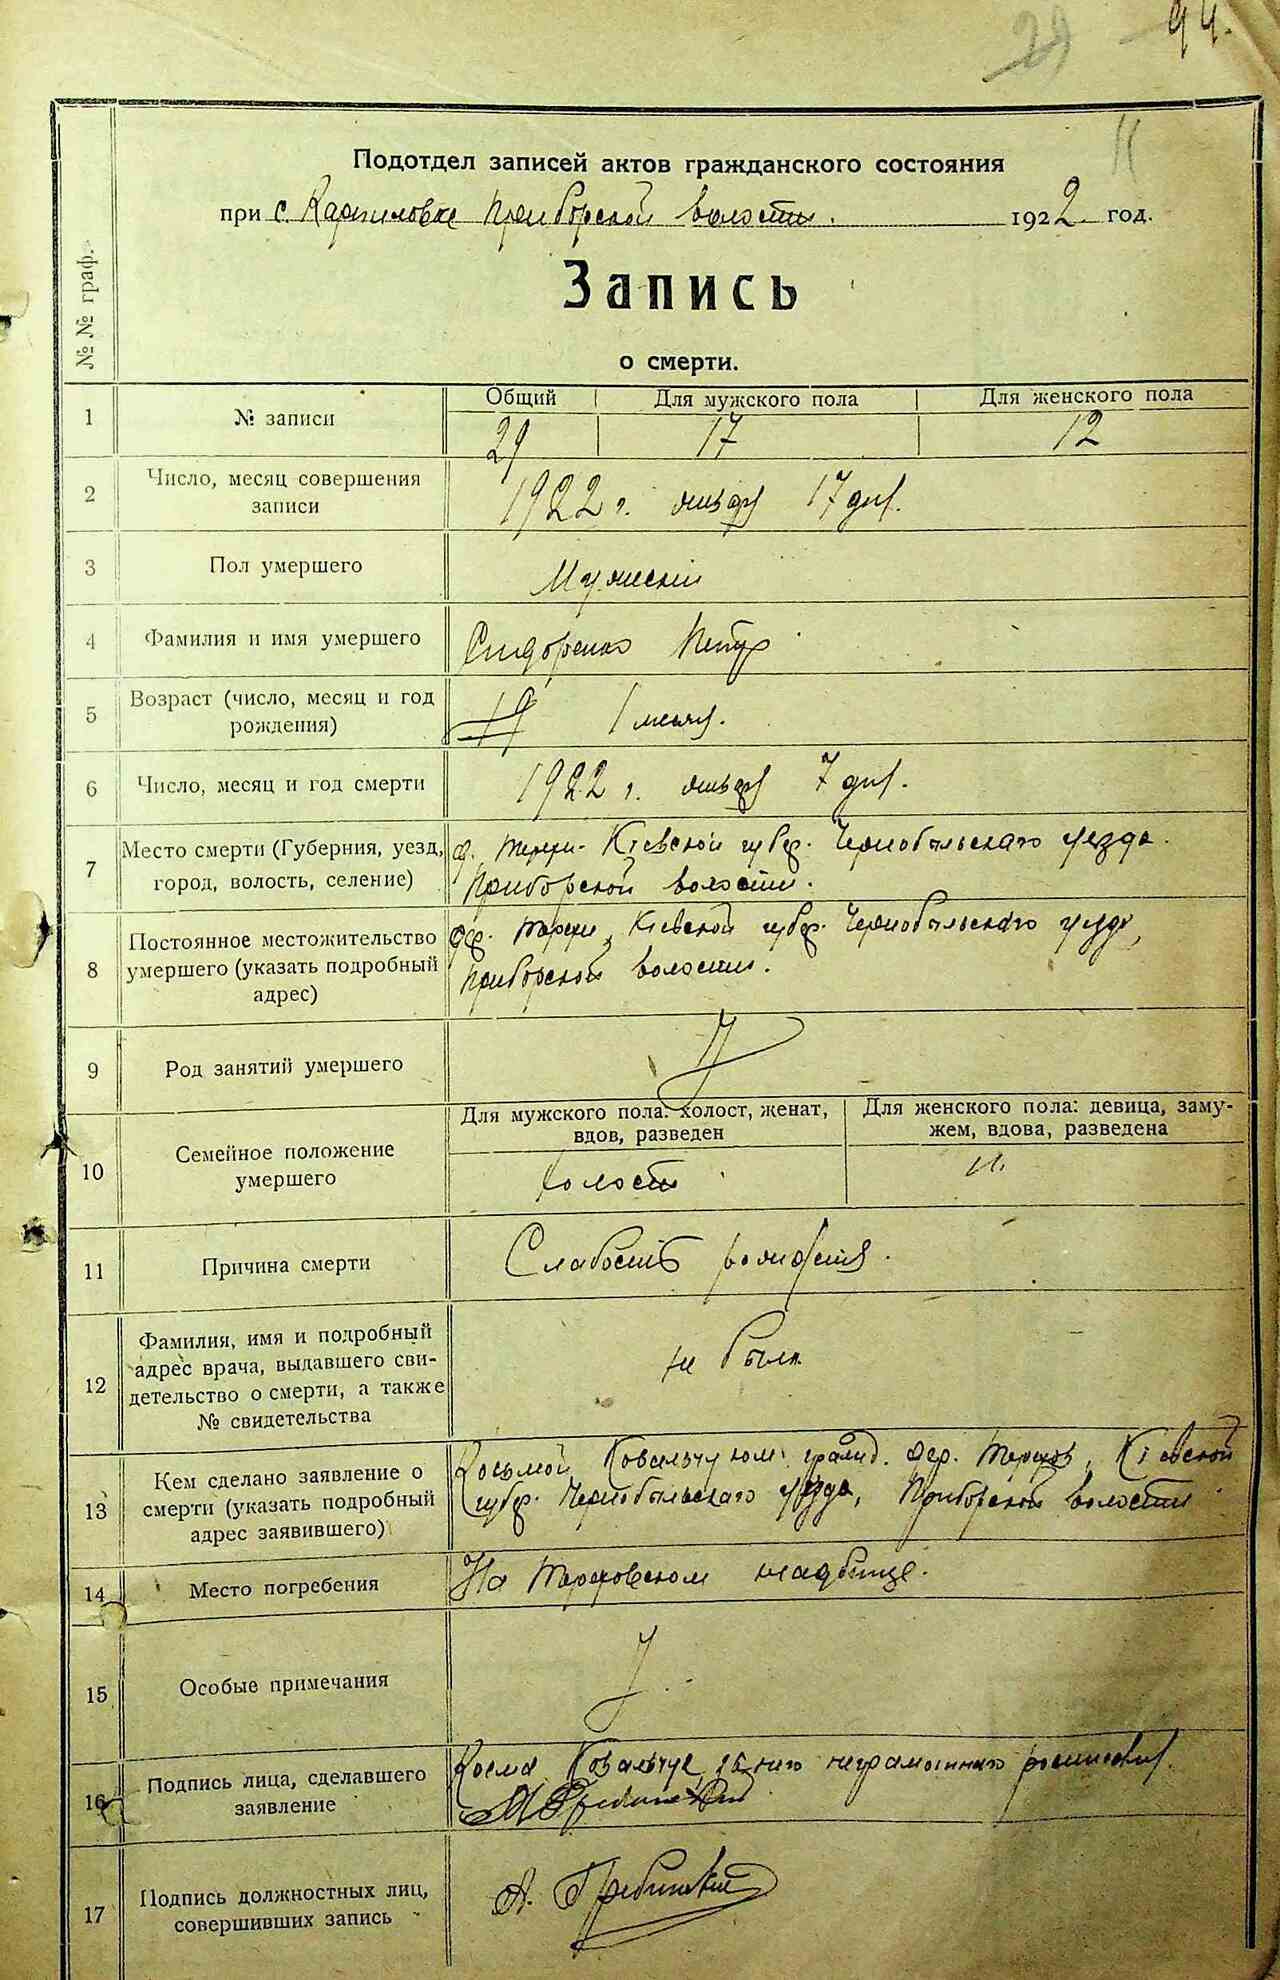 94.
29
11
Подотдел записей актов гражданского состояния
при с. Карпиловке Приборской волости. 1922 год.
Запись
о смерти.
№№ граф.
1 № записи Общий Для мужского пола Для женского пола
29 17 12
2 Число, месяц совершения записи
1922 г. январ 17 дня.
3 Пол умершего
Мужеский
4 Фамилия и имя умершего
Сидоренко Петр
5 Возраст (число, месяц и год рождения)
1 месяц.
6 Число, месяц и год смерти
1922 г. январ 7 дня.
7 Место смерти (Губерния, уезд, город, волость, селение)
Кіевской губер. Чернобыльскаго уезда.
Приборской волости.
8 Постоянное местожительство умершего (указать подробный адрес)
дер. Кіевской губер. Чернобыльскаго уезда,
Приборской волости.
9 Род занятий умершего
10 Семейное положение умершего
Для мужского пола: холост, женат, вдов, разведен
Для женского пола: девица, замужем, вдова, разведена
холост
11 Причина смерти
Слабость
12 Фамилия, имя и подробный адрес врача, выдавшего свидетельство о смерти, а также № свидетельства
не было
13 Кем сделано заявление о смерти (указать подробный адрес заявившего)
Косьмой Ковальчуком гражд. дер. Кіевской
губер. Чернобыльскаго уезда, Приборской волости
14 Место погребения
На кладбище.
15 Особые примечания
16 Подпись лица, сделавшего заявление
Косма Ковальчук, за него неграмотнаго росписався
17 Подпись должностных лиц, совершивших запись
А.